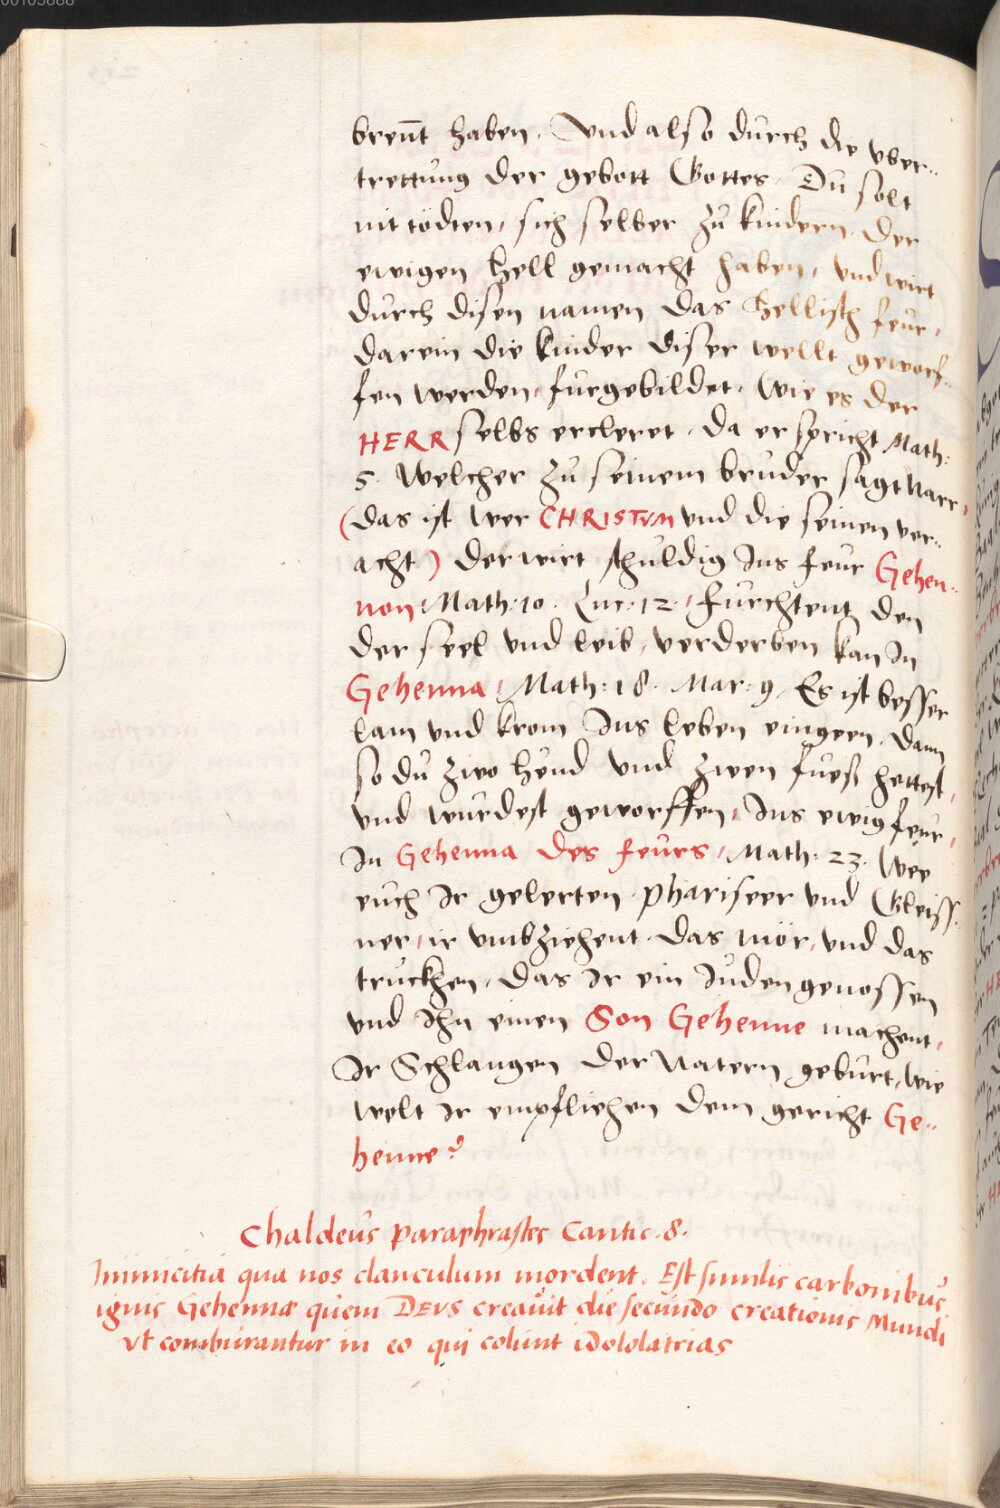 00105688
brent̄ haben. Vnd also durch die vber-
trettung der gebott Gottes. Du solt
nit tödten, sich selber zů kindern der
ewigen Hell gemacht haben, vnd wirt
durch disen namen das Hellisch feur,
darein die kinder diser wellt geworf-
fen werden, furgebildet. Wie es der
HERR selbs ercleret. Da er spricht Math:
5. Welcher zů seinem brůder sagt Narr,
(das ist wer CHRISTVM vnd die seinen ver-
acht) der wirt schuldig Ins feur Gehen-
non, Math: 10. Luc: 12, Furchtent den
der seel vnd leib, verderben kan In
Gehenna, Math: 18. Mar: 9. Es ist besser
lam vnd krom Ins leben eingeen. Dann
so du zwo hend vnd zwen fuess hettest,
vnd wurdest geworffen, Ins ewig feur,
In Gehenna des feurs, Math: 23. Wee
euch Ir gelerten phariseer vnd Gleiss-
ner, ir vmbziehent das mör, vnd das
truckhen, das Ir ein Judengenossen
vnd Ihn einen Son Gehenne machent,
Ir Schlangen der Natern geburt, wie
welt Ir empfliehen dem gericht Ge-
henne?
Chaldeus paraphrastes Cantic. 8.
Inimicitia qua nos clanculum mordent. Est similis carbonibus
ignis Gehennæ quem DEVS creauit die secundo creationis Mundi
vt comburantur in eo qui colunt idololatrias